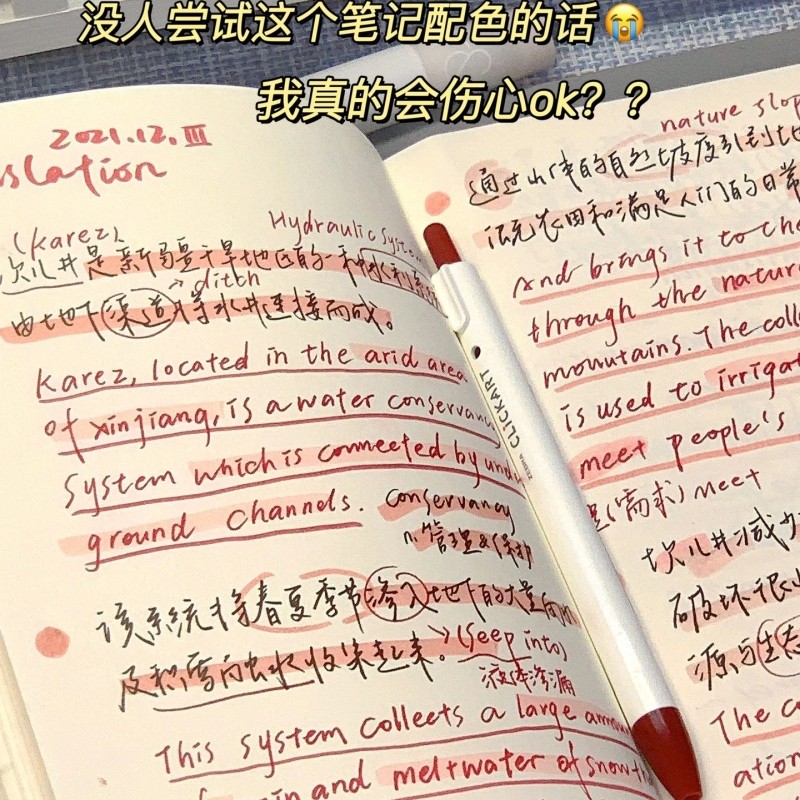 没人尝试这个笔记配色的话😭
我真的会伤心ok？？
2021.12.III
slation
(Karez)
Hydraulic System
坎儿井是新疆干旱地区的一种水利系统
ditch
由地下渠道将水井连接而成。
Karez, located in the arid area
of xinjiang, is a water conservancy
System which is conneeted by under
ground channels.
conservancy
n.管理&保护
该系统将春夏季节渗入地下的大量雨水
及积雪融水收集起来。
(Seep into)
液体渗漏
This system colleets a large amoun
rain and meltwater of snow th
CLICKART
ZEBRA
nature slop
通过山体的自然坡度引到地
灌充农田和满足人们的日常
And brings it to the
through the natur
mountains. The colle
is used to irrigat
meet people's
(需求) meet
坎儿井减少
破坏很小
源与生态
The co
ation